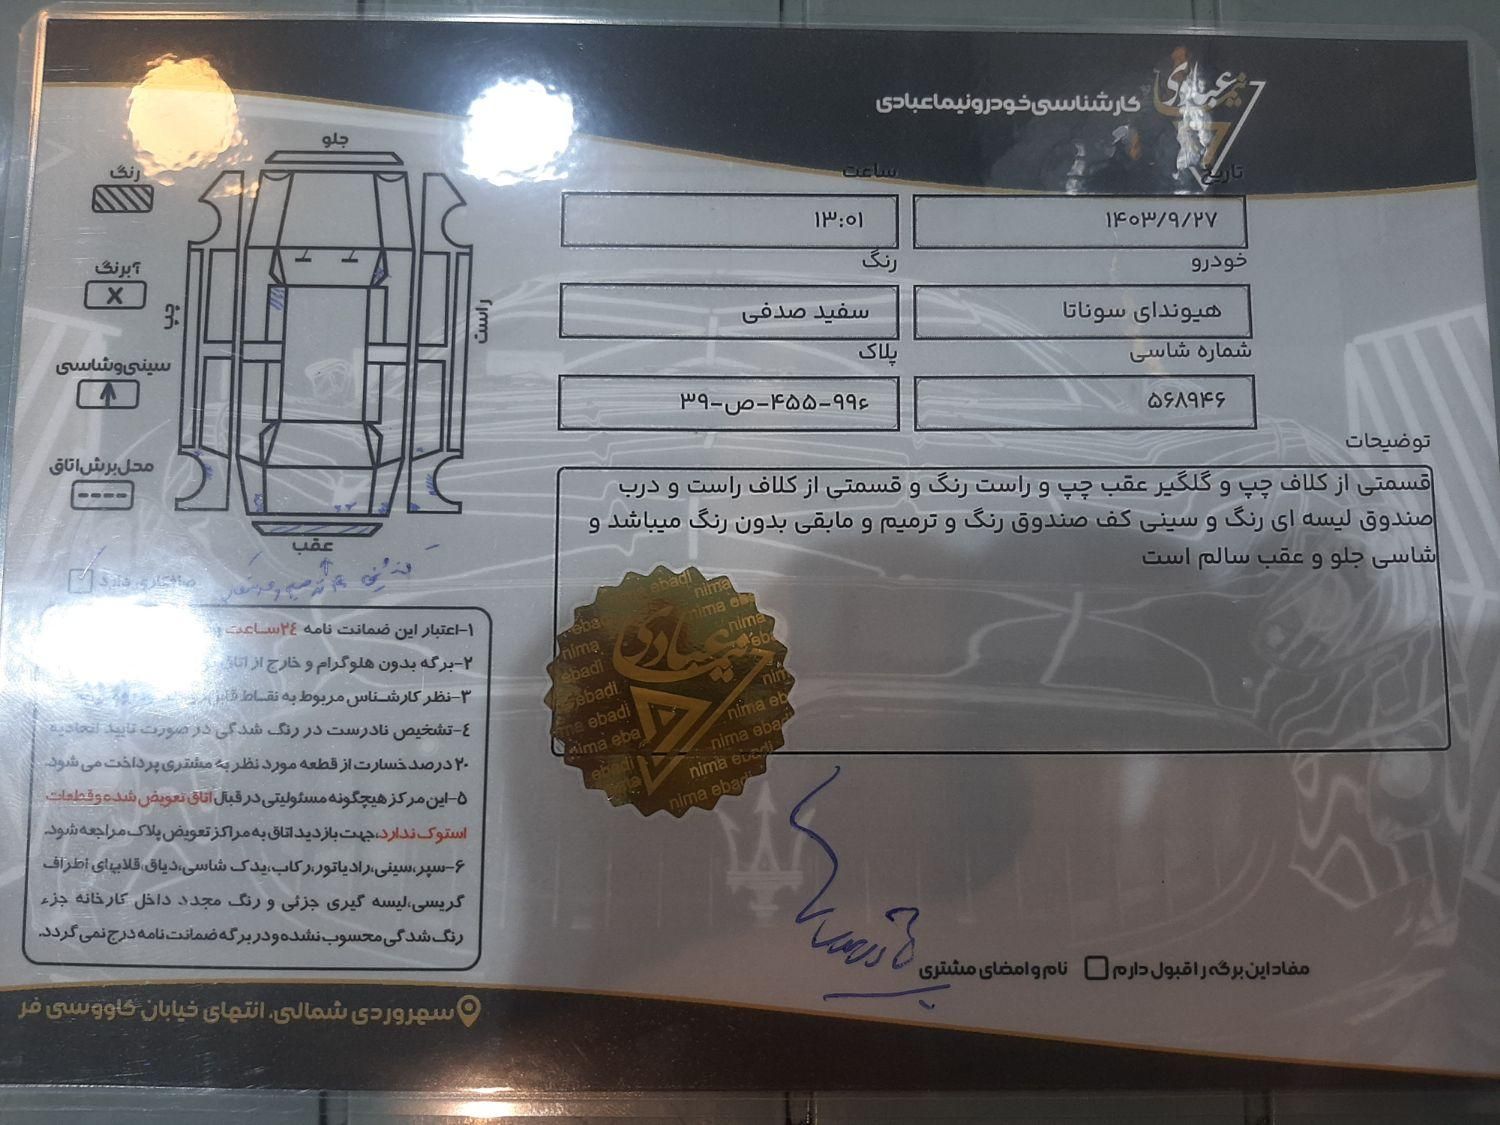 نیما عبادی
کارشناسی خودرو نیما عبادی
تاریخ
ساعت
۱۴۰۳/۹/۲۷
۱۳:۰۱
خودرو
رنگ
هیوندای سوناتا
سفید صدفی
شماره شاسی
پلاک
۵۶۸۹۴۶
۳۹-ص-۴۵۵-۹۹۶
توضیحات
قسمتی از کلاف چپ و گلگیر عقب چپ و راست رنگ و قسمتی از کلاف راست و درب
صندوق لیسه ای رنگ و سینی کف صندوق رنگ و ترمیم و مابقی بدون رنگ میباشد و
شاسی جلو و عقب سالم است
جلو
رنگ
آبرنگ
X
چپ
راست
سینی و شاسی
محل برش اتاق
عقب
صافکاری دارد
۱-اعتبار این ضمانت نامه ۲۴ساعت
۲-برگه بدون هلوگرام و خارج از اتاق
۳-نظر کارشناس مربوط به نقاط
۴-تشخیص نادرست در رنگ شدگی در صورت تایید اتحادیه
۲۰ درصد خسارت از قطعه مورد نظر به مشتری پرداخت می شود.
۵-این مرکز هیچگونه مسئولیتی در قبال اتاق تعویض شده و قطعات
استوک ندارد،جهت بازدید اتاق به مراکز تعویض پلاک مراجعه شود.
۶-سپر،سینی،رادیاتور،رکاب،یدک شاسی،دیاق،قلابهای اطراف
گریسی،لیسه گیری جزئی و رنگ مجدد داخل کارخانه جزء
رنگ شدگی محسوب نشده و در برگه ضمانت نامه درج نمی گردد.
نیما عبادی
nima ebadi
مفاد این برگه را قبول دارم
نام و امضای مشتری
سهروردی شمالی، انتهای خیابان کاووسی فر